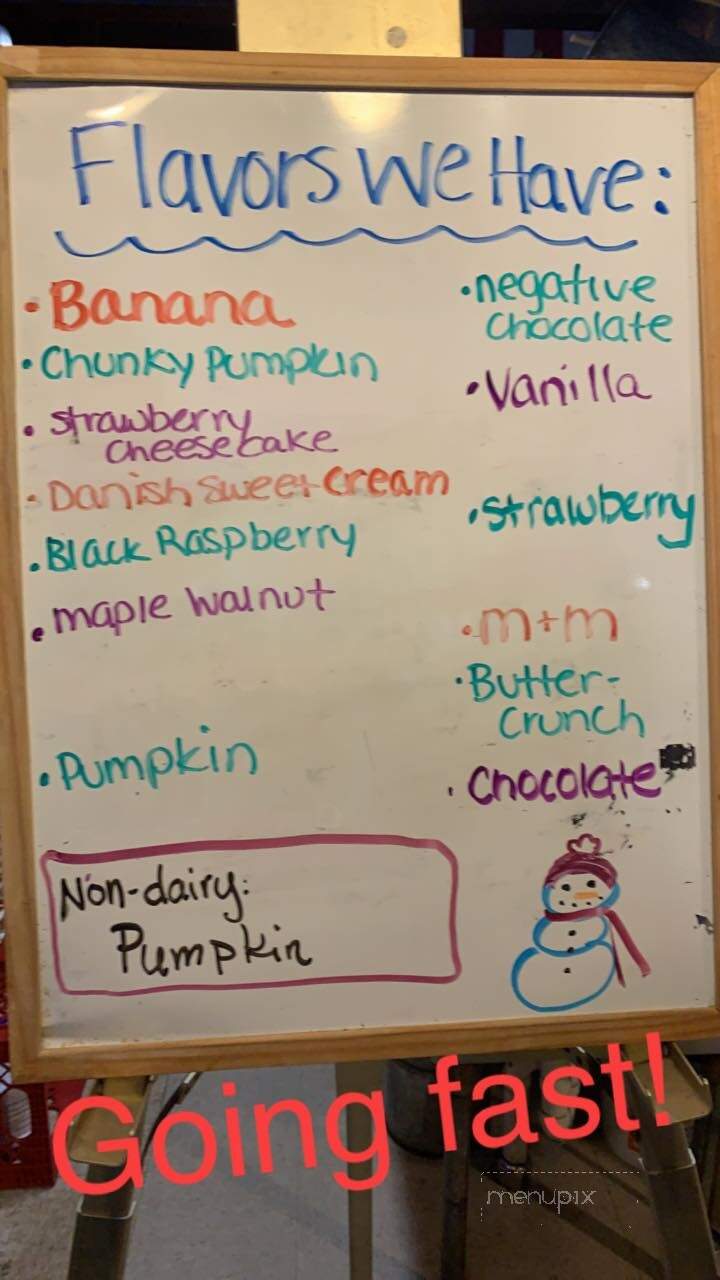 Flavors We Have:
• Banana
• Chunky Pumpkin
• strawberry
cheesecake
• Danish Sweet Cream
• Black Raspberry
• maple walnut
• Pumpkin
• negative
chocolate
• Vanilla
• strawberry
• m+m
• Butter-
crunch
• chocolate
Non-dairy:
Pumpkin
Going fast!
menupix